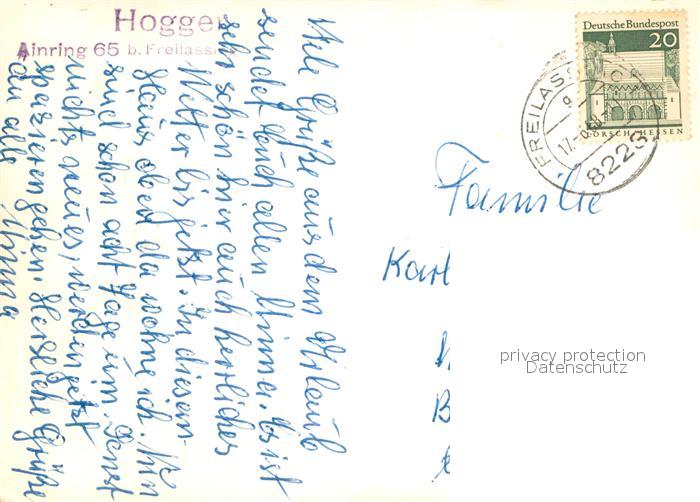 Hogge
Ainring 65 b. Freilass
Viele Grüße aus dem Urlaub
sendet Euch allen Minna. Es ist
sehr schön hier auch herrliches
Wetter bis jetzt. In diesem
Haus oben da wohne ich. Nun
sind schon acht Tage um. Sonst
nichts neues, werden jetzt
spazieren gehen. Herzliche Grüße
an alle Minna
Deutsche Bundespost
20
LORSCH HESSEN
FREILASS
g
17.
8228
Familie
Karl
B
privacy protection
Datenschutz